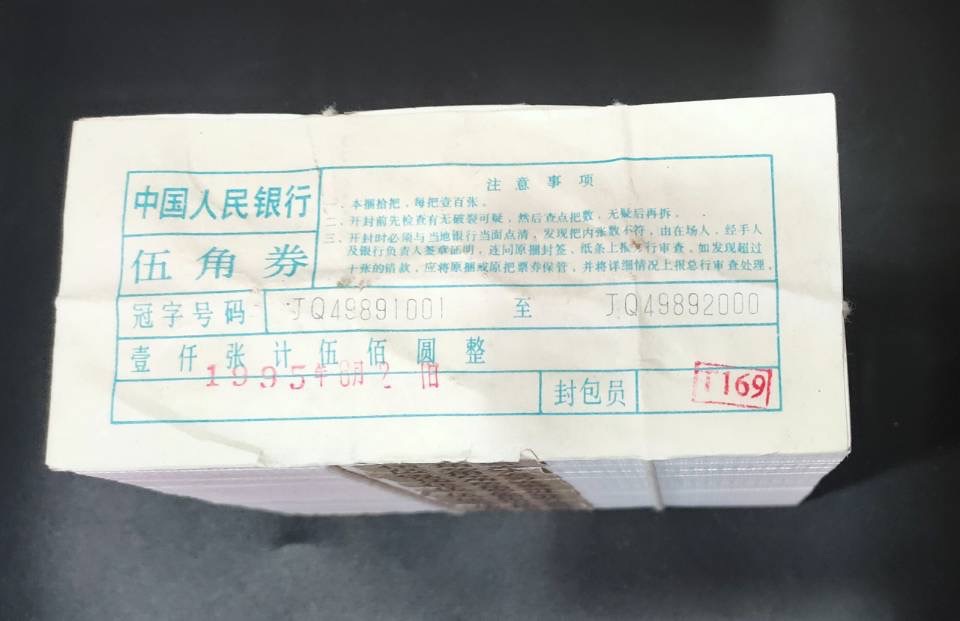 中国人民银行
伍角券
注意事项
一、本捆拾把，每把壹百张。
二、开封前先检查有无破裂可疑，然后查点把数，无疑后再拆。
三、开封时必须与当地银行当面点清，发现把内张数不符，由在场人、经手人
及银行负责人签章证明，连同原捆封签、纸条上报行审查。如发现超过
十张的错款，应将原捆或原把票券保管，并将详细情况上报总行审查处理。
冠字号码 JQ49891001 至 JQ49892000
壹仟张计伍佰圆整
1995年8月2日
封包员 1169